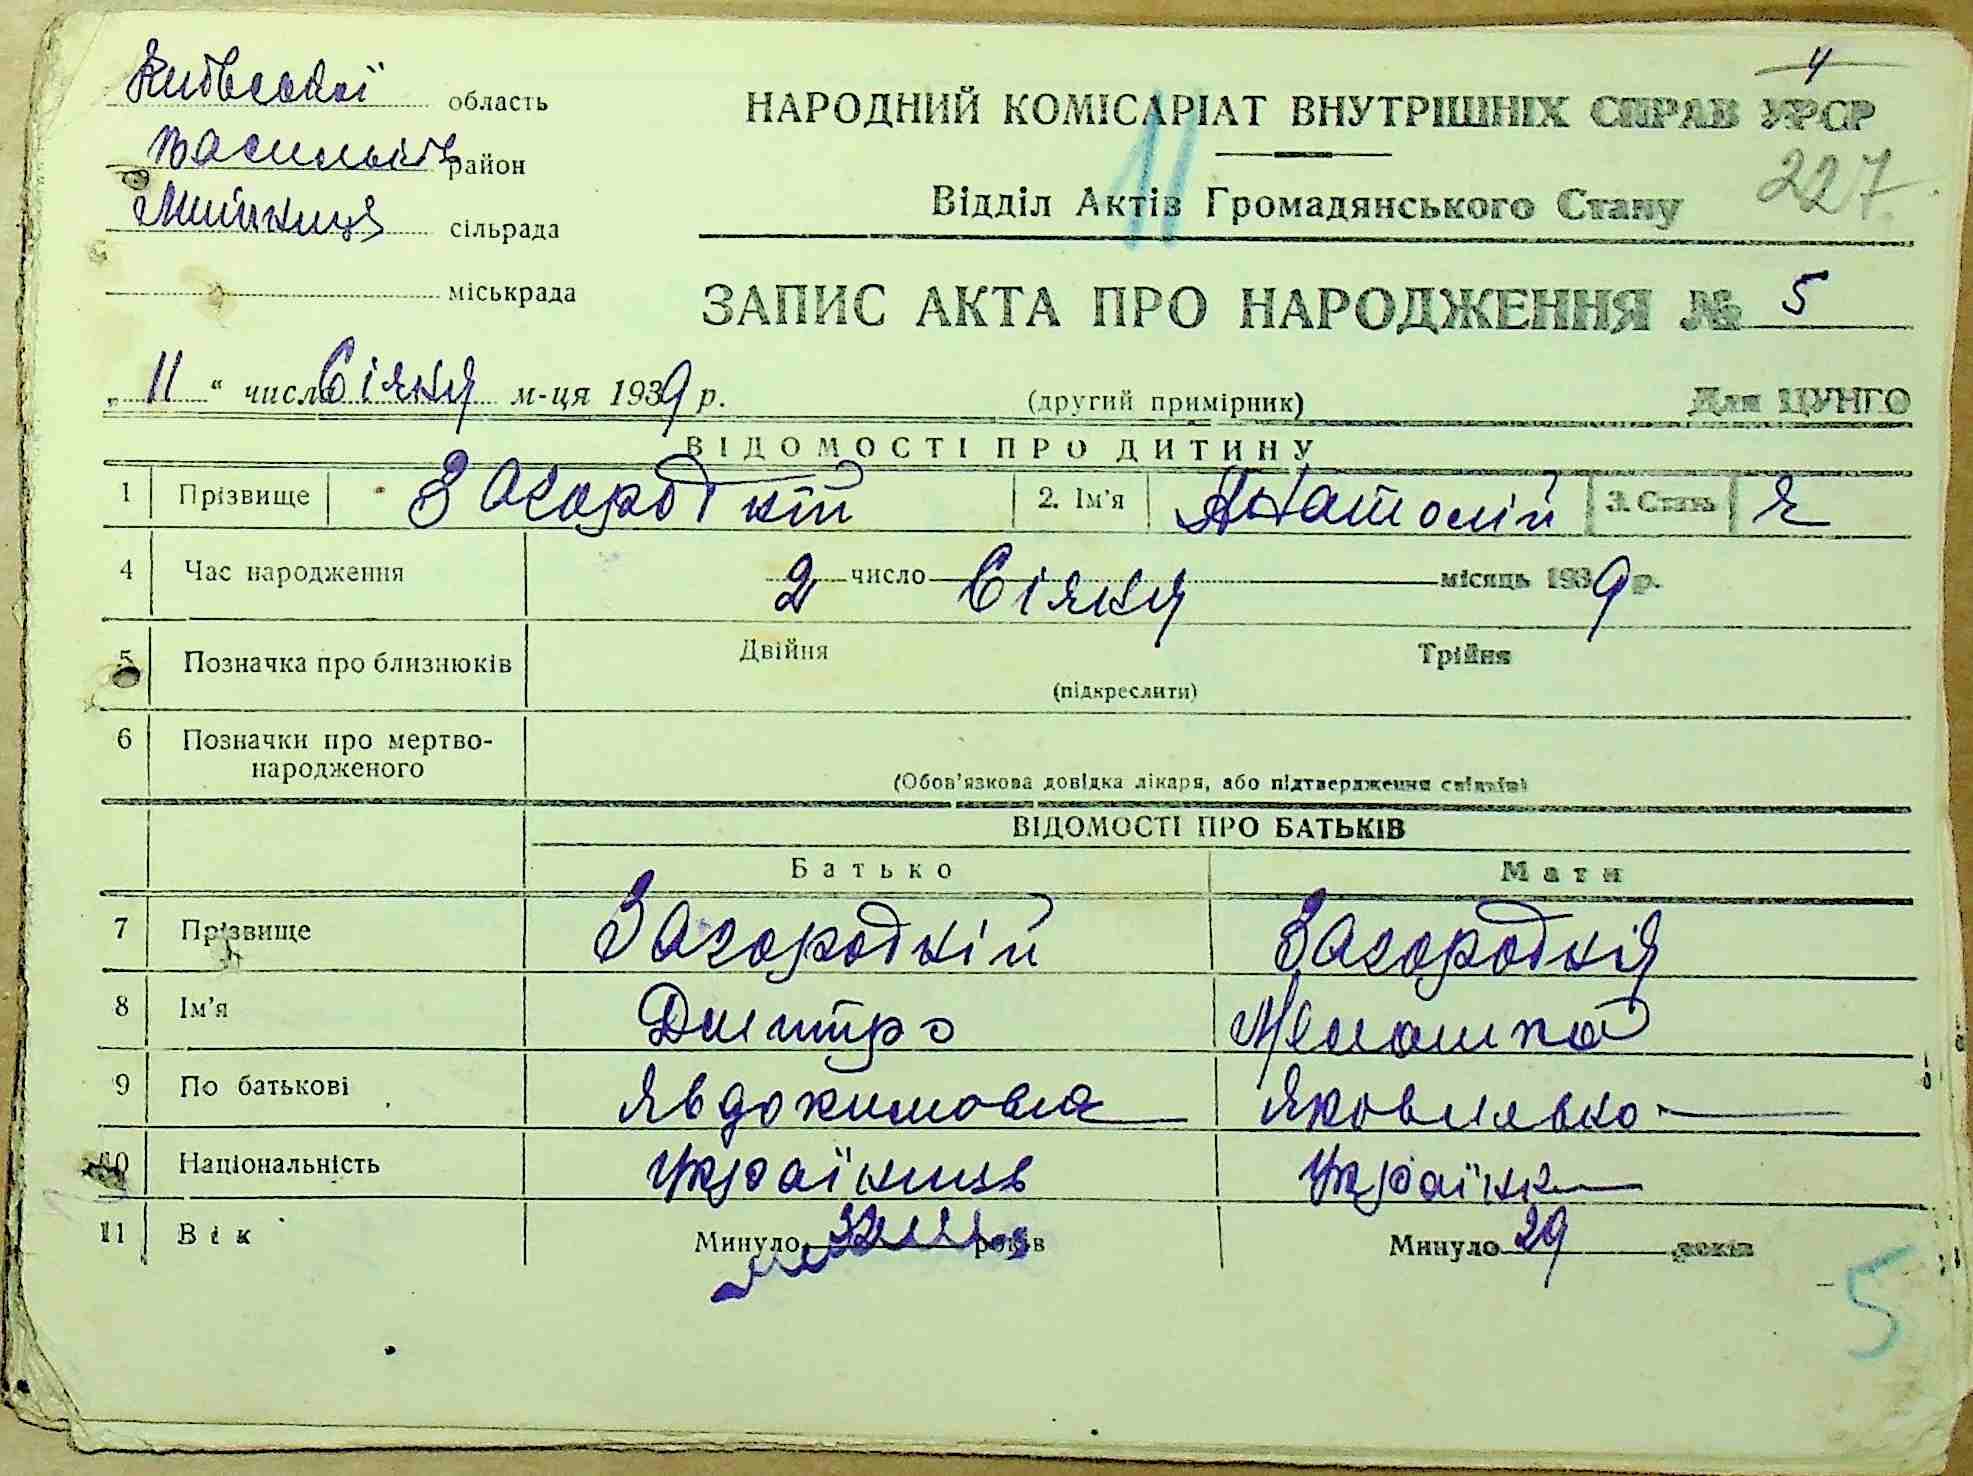 Київської область
Васильків район
сільрада
міськрада
4
НАРОДНИЙ КОМІСАРІАТ ВНУТРІШНІХ СПРАВ УРСР
11
227
Відділ Актів Громадянського Стану
ЗАПИС АКТА ПРО НАРОДЖЕННЯ № 5
„ 11 " число Січня м-ця 1939 р. (другий примірник) Для ЦУНГО
ВІДОМОСТІ ПРО ДИТИНУ
1 Прізвище Загородній 2. Ім'я Анатолій 3. Стать Ч
4 Час народження 2 число Січня місяць 1939 р.
5 Позначка про близнюків Двійня Трійня
(підкреслити)
6 Позначки про мертво-
народженого
(Обов'язкова довідка лікаря, або підтвердження свідків)
ВІДОМОСТІ ПРО БАТЬКІВ
Батько Мати
7 Прізвище Загородній Загородня
8 Ім'я Дмитро
9 По батькові Явдокимович Яковлівна
10 Національність Українець Українка
11 Вік Минуло 32 років Минуло 29 років
5